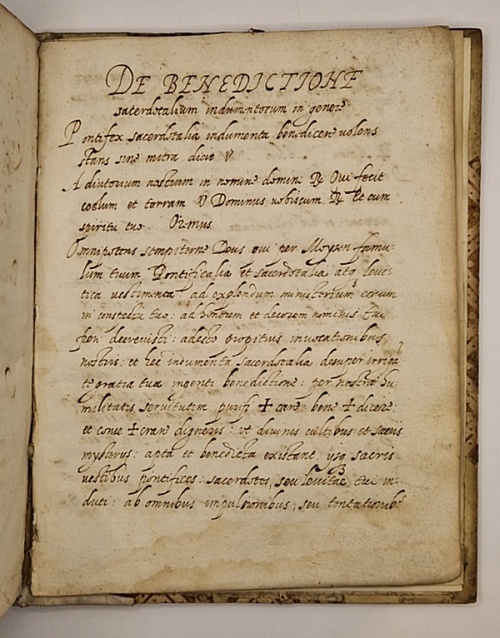 DE BENEDICTIONE
sacerdotalium indumentorum in genere
Pontifex sacerdotalia indumenta benedicere uolens
stans sine mitra dicit V
Adiutorium nostrum in nomine domini R Qui fecit
coelum et terram V Dominus uobiscum R Et cum
spiritu tuo. Oremus
Omnipotens sempiterne Deus qui per Moysen famu-
lum tuum Pontificalia et sacerdotalia atq leui-
tica uestimenta ad explendum ministerium eorum
in conspectu tuo: ad honorem et decorem nominis tui
fieri decreuisti: adesto propitius inuocationibus
nostris: et hec indumenta sacerdotalia desuper irriga
te gratia tua ingenti benedictione: per nostrae hu
militatis seruitutem purifi ✝ care: bene ✝ dicere:
et conse ✝ crare digneris: vt diuinis cultibus et sacris
mysterijs: apta et benedicta existant ysq sacris
vestibus pontifices: sacerdotes, seu leuitae tui in-
duti: ab omnibus impulsionibus, seu tentationib